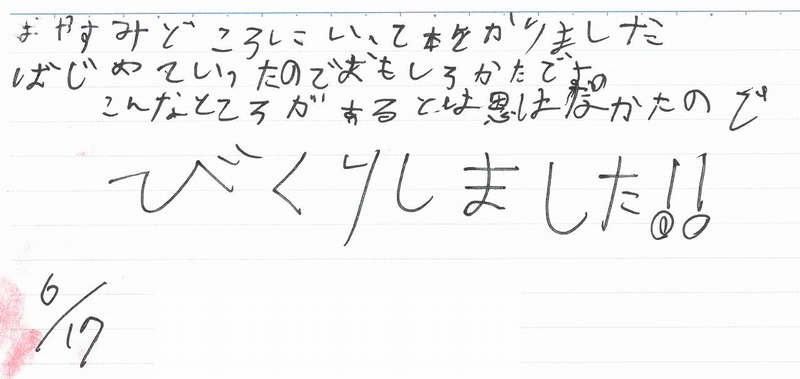 おやすみどころにいって本をかりました
はじめていったのでおもしろかたです
こんなところがあるとは思はなかたので
びくりしました!!
6/17